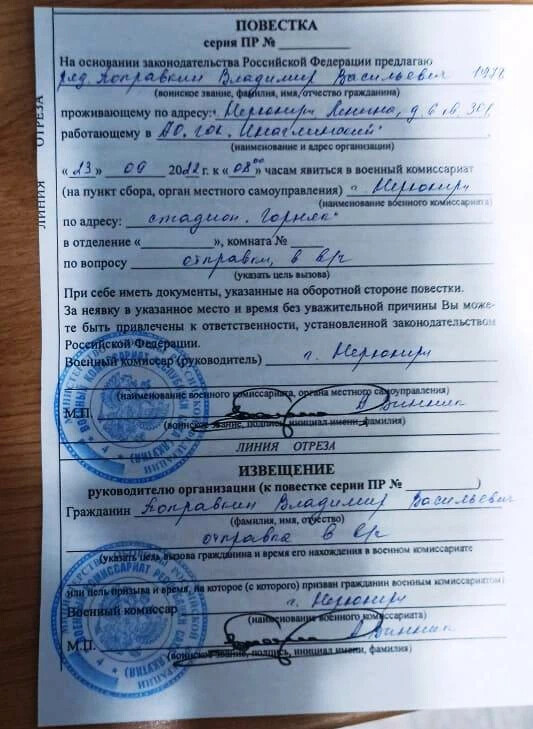 ПОВЕСТКА
серия ПР №
На основании законодательства Российской Федерации предлагаю
ряд. Коправкин Владимир Васильевич
(воинское звание, фамилия, имя, отчество гражданина)
проживающему по адресу: г. Нерюнгри Ленина, д. 6
работающему в АО. ГОК. Инаглинский"
(наименование и адрес организации)
« 23 » 09 2022 г. к « 08 00 » часам явиться в военный комиссариат
(на пункт сбора, орган местного самоуправления) г. Нерюнгри
(наименование военного комиссариата)
по адресу: стадион. Горняк"
в отделение « », комната №
по вопросу отправки, в
(указать цель вызова)
При себе иметь документы, указанные на оборотной стороне повестки.
За неявку в указанное место и время без уважительной причины Вы може-
те быть привлечены к ответственности, установленной законодательством
Российской Федерации.
Военный комиссар (руководитель) г. Нерюнгри
(наименование военного комиссариата, органа местного самоуправления)
М.П.
(воинское звание, подпись, инициал имени, фамилия)
ЛИНИЯ ОТРЕЗА
ИЗВЕЩЕНИЕ
руководителю организации (к повестке серии ПР № )
Гражданин Коправкин Владимир Васильевич
(фамилия, имя, отчество)
отправка в
(указать цель вызова гражданина и время его нахождения в военном комиссариате
или цель призыва и время, на которое (с которого) призван гражданин военным комиссариатом)
Военный комиссар г. Нерюнгри
(наименование военного комиссариата)
М.П.
(воинское звание, подпись, инициал имени, фамилия)
ЛИНИЯ ОТРЕЗА